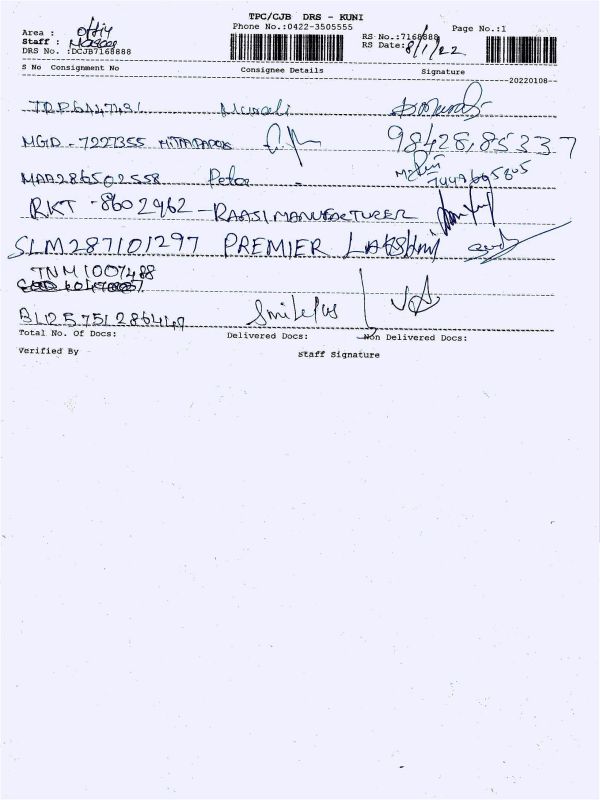 TPC/CJB DRS - KUNI
Phone No.:0422-3505555
Area :
Staff :
RS No.:7168888 Page No.:1
RS Date: 8/1/22
DRS No. :DCJB7168888
S No Consignment No Consignee Details Signature
20220108
Murali
MGD - 7227355
98428,85337
MAA286502558 Peter
RKT - 8602962 - RAASI MANUFACTURER
SLM287101297 PREMIER LAKSHMI
TNM1007488
Total No. Of Docs: Delivered Docs: Non Delivered Docs:
Verified By Staff Signature